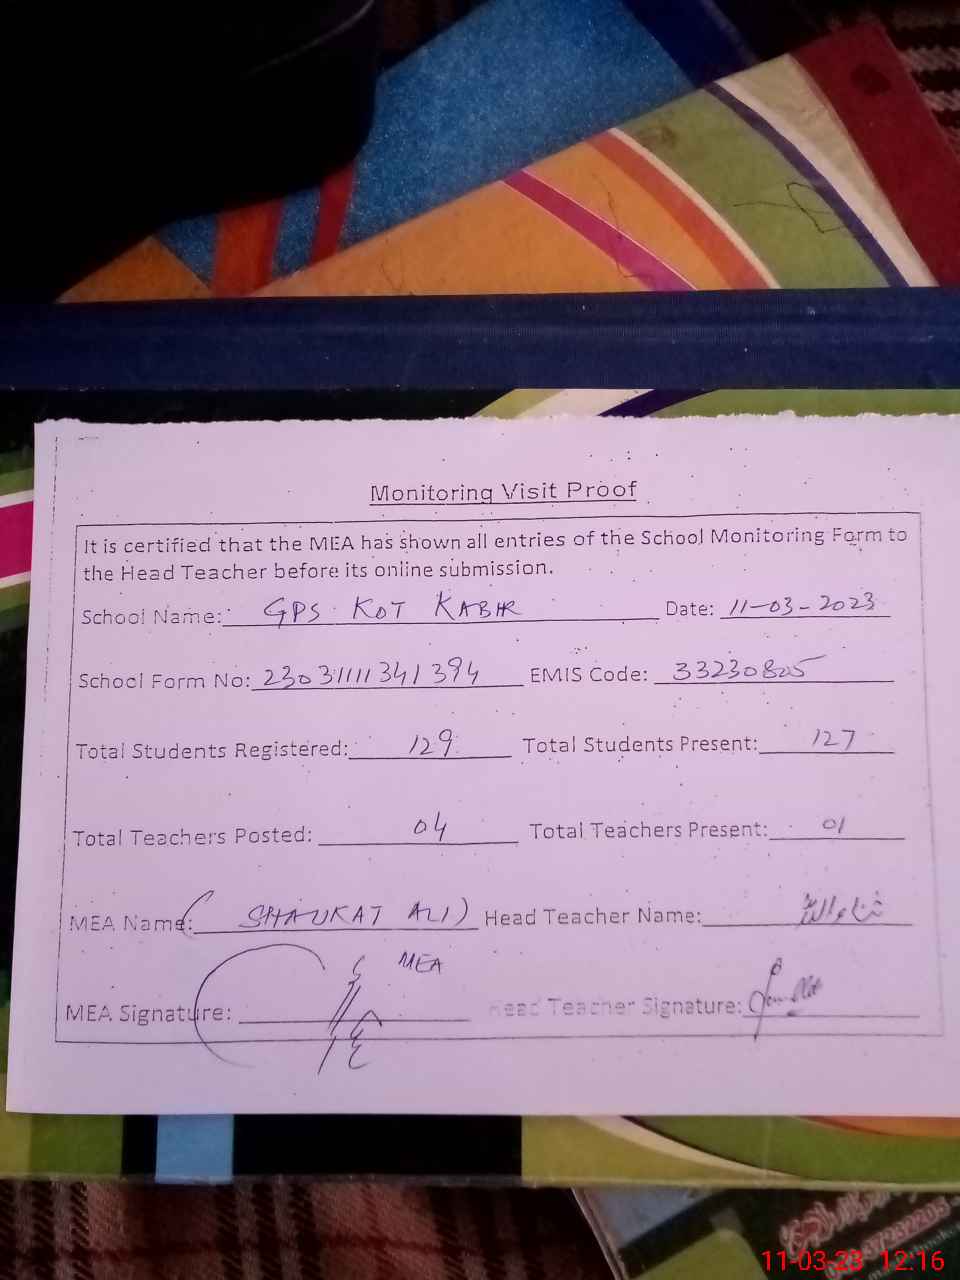 Monitoring Visit Proof
It is certified that the MEA has shown all entries of the School Monitoring Form to
the Head Teacher before its online submission.
School Name: GPS KOT KABIR Date: 11-03-2023
School Form No: 23031111341394 EMIS Code: 33230805
Total Students Registered: 129 Total Students Present: 127
Total Teachers Posted: 04 Total Teachers Present: 01
MEA Name: (SHAUKAT ALI) Head Teacher Name: ثناء اللہ
MEA
MEA Signature: Head Teacher Signature:
11-03-23 12:16